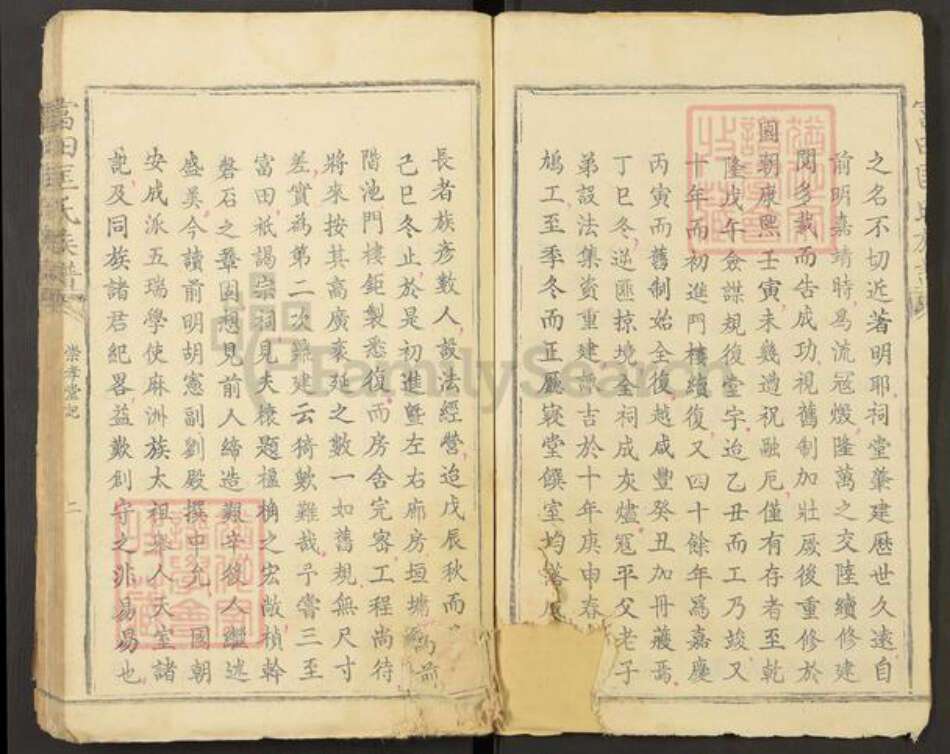 之名不切近著明耶祠堂肇建歷世久遠自
前明嘉靖時爲流寇燬隆萬之交陸續修建
閱多載而告成功視舊制加壯厥後重修於
國朝康熙壬寅未幾遇祝融厄僅有存者至乾
隆戊午僉謀規復堂宇迨乙丑而工乃竣又
十年而初進門樓續復又四十餘年爲嘉慶
丙寅而舊制始全復越咸豐癸丑加冊藏焉
丁巳冬逆匪掠境全祠成灰燼寇平父老子
弟設法集資重建諏吉於十年庚申春
鳩工至季冬而正廳寢堂饌室均落
長者族彥數人設法經營迨戊辰秋而
己巳冬止於是初進暨左右廊房垣墉
階池門樓鉅製悉復而房舍完密工程尚待
將來按其高廣袤延之數一如舊規無尺寸
差實爲第二次鼎建云猗歟難哉予嘗三至
富田祇謁宗祠見夫榱題楹桷之宏敞楨幹
磐石之鞏固想見前人締造艱辛後人繼述
盛美今讀前明胡憲副劉殿撰中允 國朝
安成派五瑞學使麻洲族太祖舉人天室諸
記及同族諸君紀畧益歎創守之非易易也
富田匡氏族譜
崇孝堂記
二
FamilySearch